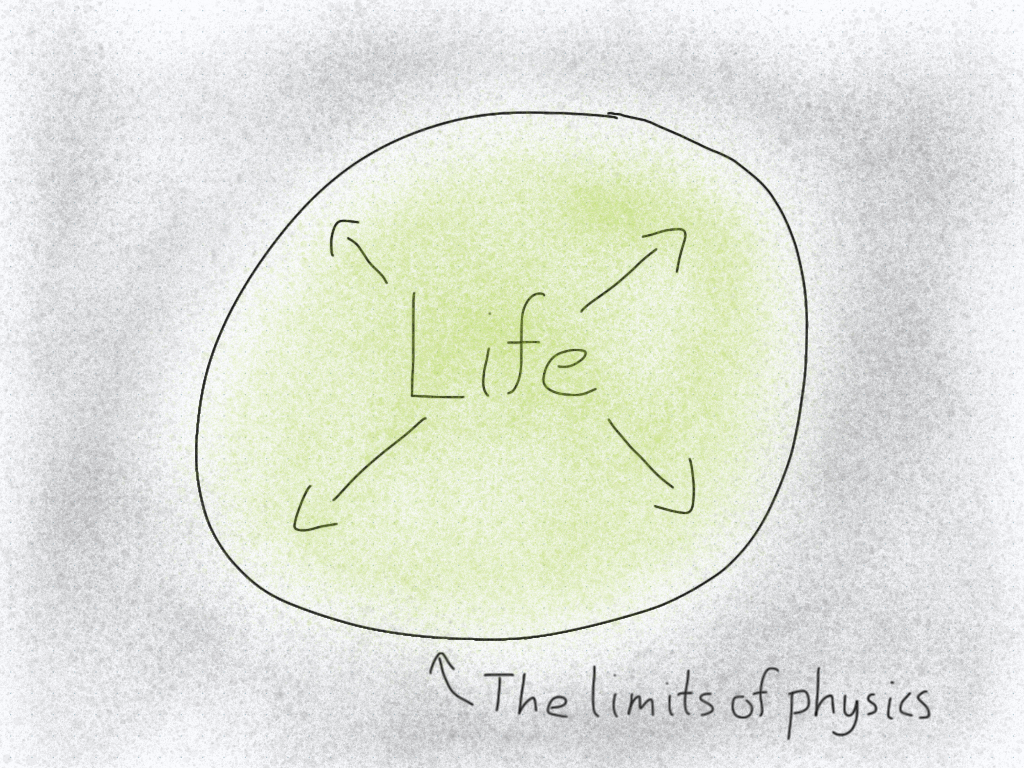 Life
The limits of physics